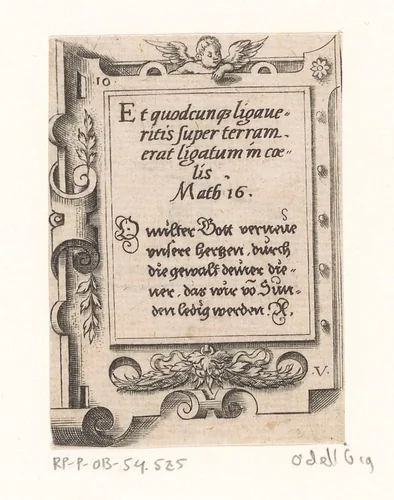 10
Et quodcunqꝫ ligaue-
ritis super terram
erat ligatum in cœ-
lis.
Math 16.
O milter Gott verneue
vnsere hertzen, durch
die gewalt deiner die-
ner, das wir vō Sun-
den ledig werden. A.
.V.
RP-P-OB-54.525